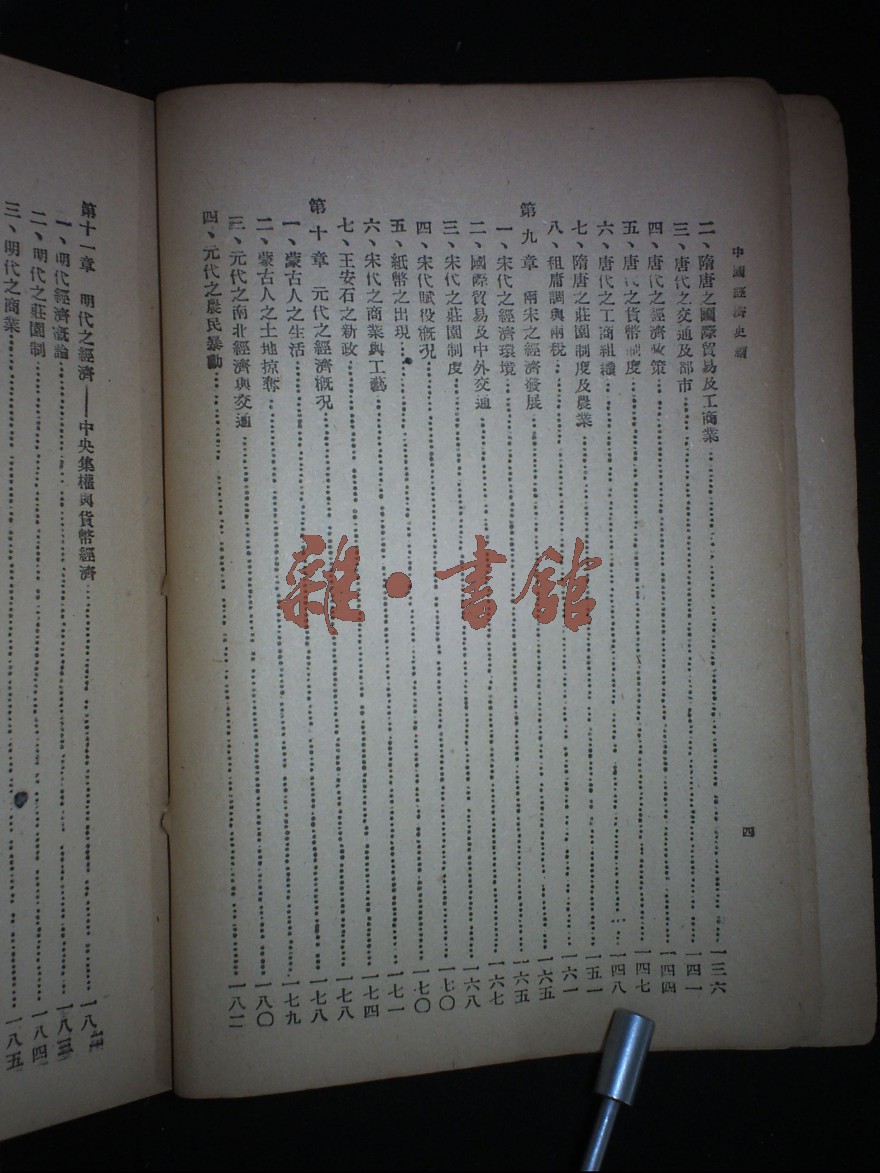 中國經濟史綱
四
二、隋唐之國際貿易及工商業……一三六
三、唐代之交通及都市……一四一
四、唐代之經濟政策……一四四
五、唐代之貨幣制度……一四七
六、唐代之工商組織……一四八
七、隋唐之莊園制度及農業……一五一
八、租庸調與兩稅……一六一
第九章 兩宋之經濟發展……一六五
一、宋代之經濟環境……一六五
二、國際貿易及中外交通……一六七
三、宋代之莊園制度……一六八
四、宋代賦役概況……一七〇
五、紙幣之出現……一七〇
六、宋代之商業與工藝……一七一
七、王安石之新政……一七四
第十章 元代之經濟概況……一七八
一、蒙古人之生活……一七八
二、蒙古人之土地掠奪……一七九
三、元代之南北經濟與交通……一八〇
四、元代之農民暴動……一八二
第十一章 明代之經濟——中央集權與貨幣經濟……一八
一、明代經濟概論……一八三
二、明代之莊園制……一八四
三、明代之商業……一八五
雜·書館